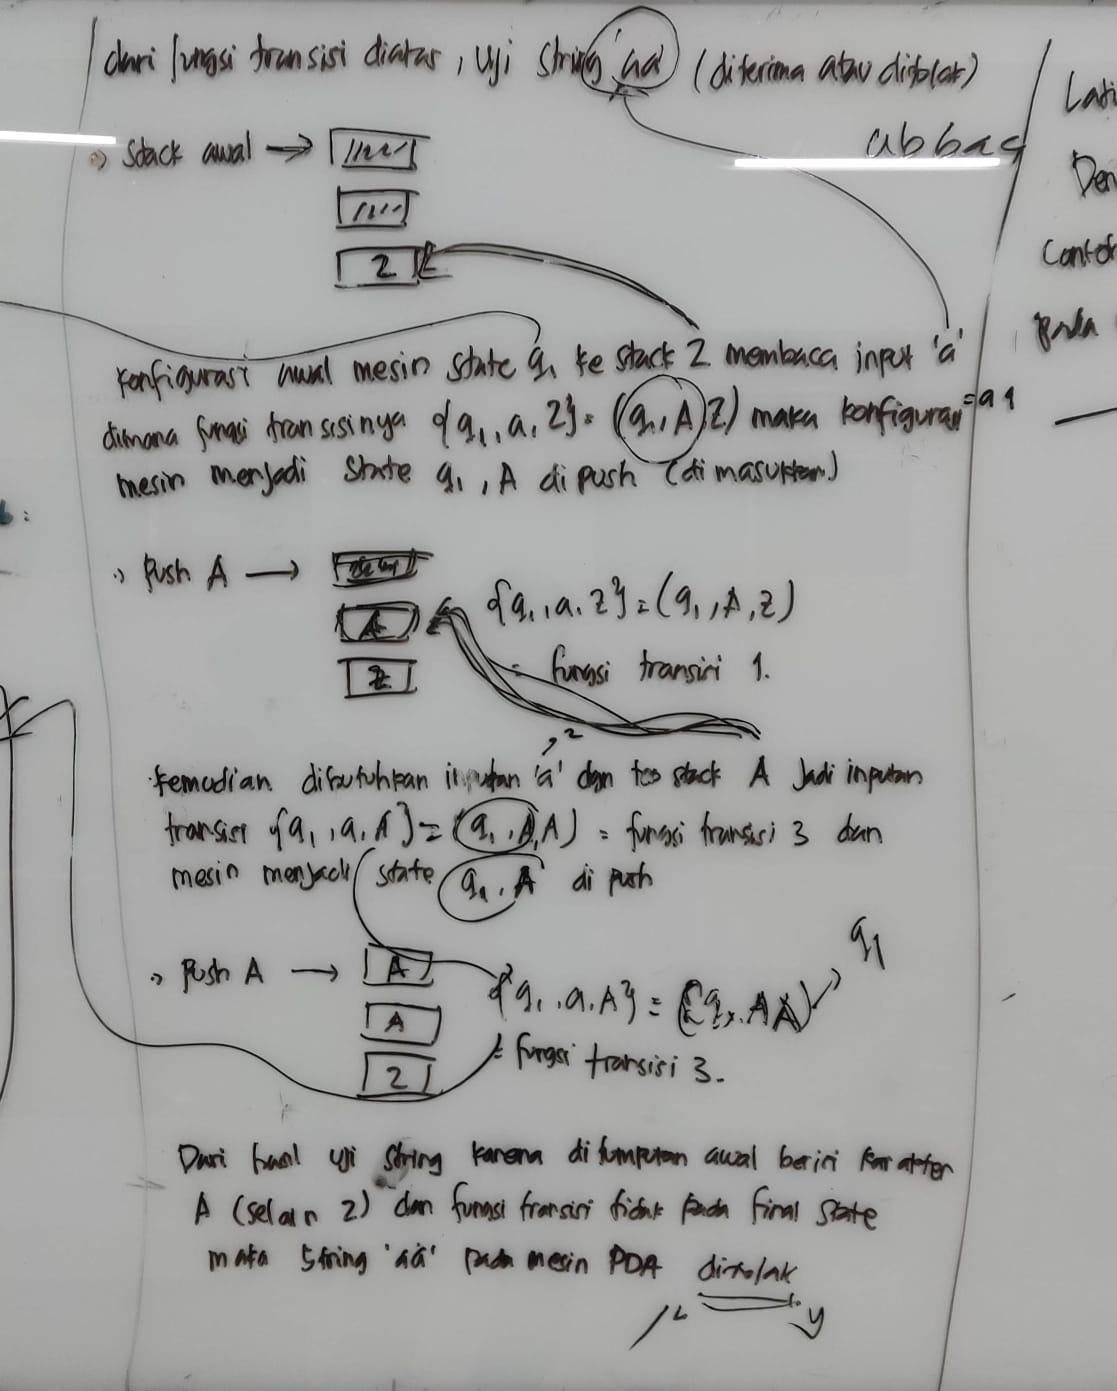 dari fungsi transisi diatas, Uji string 'aa' (diterima atau ditolak)
abbaq
Stack awal →
Z
konfigurasi awal mesin state q1 ke stack Z membaca input 'a'
dimana fungsi transisinya {q1, a, Z} = (q1, A Z) maka konfigurasi = q1
mesin menjadi state q1, A di push (di masukkan)
Push A →
A
Z
{q1, a, Z} = (q1, A, Z)
= fungsi transisi 1.
2
kemudian dibutuhkan inputan 'a' dgn top stack A Jadi inputan
transisi {q1, a, A} = (q1, A, A) = fungsi transisi 3 dan
mesin menjadi state q1, A di push
Push A →
A
A
Z
{q1, a, A} = (q1, AA) → q1
= fungsi transisi 3.
Dari hasil uji string karena di tumpukan awal berisi karakter
A (selain Z) dan fungsi transisi tidak pada final state
maka string 'aa' pada mesin PDA ditolak
y
Lati
Den
Contoh
pada